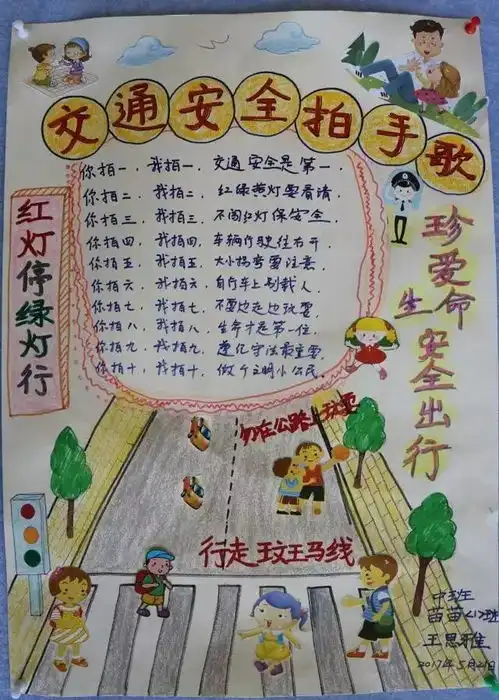 交通安全拍手歌
红灯停绿灯行
你拍一，我拍一，交通安全是第一，
你拍二，我拍二，红绿黄灯要看清，
你拍三，我拍三，不闯红灯保安全
你拍四，我拍四，车辆行驶往右开，
你拍五，我拍五，大小拐弯要注意，
你拍六，我拍六，自行车上别载人，
你拍七，我拍七，不要边走边玩耍，
你拍八，我拍八，生命才是第一位，
你拍九，我拍九，遵纪守法最重要，
你拍十，我拍十，做个文明小公民。
珍爱生命
安全出行
勿在公路上玩耍
行走斑马线
中班
苗苗<1>班
王思雅
2017年5月21日